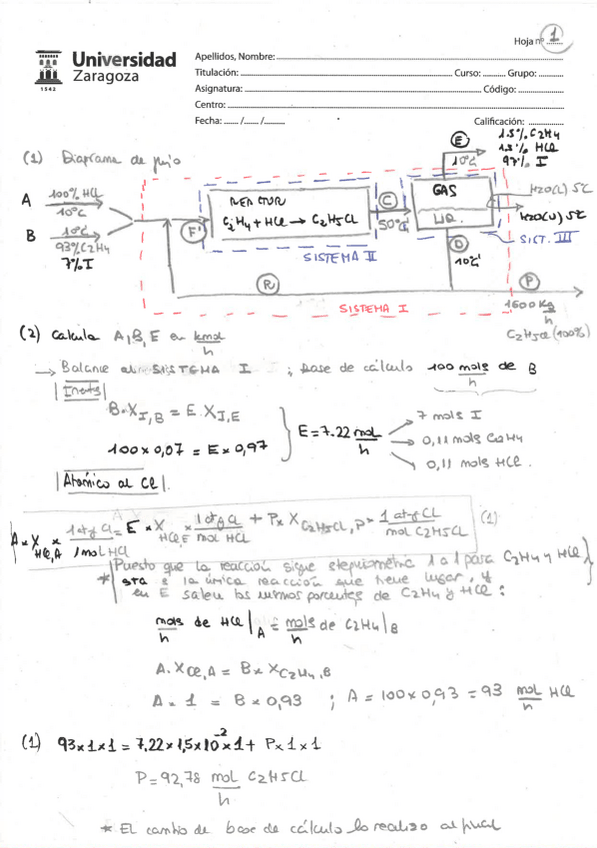 Hoja nº 1
Universidad
Zaragoza
1542
Apellidos, Nombre:
Titulación: Curso: Grupo:
Asignatura: Código:
Centro:
Fecha: / / Calificación:
(1) Diagrama de flujo
E
1.5% C2H4
1.5% HCl
97% I
10ºC
A 100% HCl
10ºC
B 10ºC
93% C2H4
7% I
F'
REACTOR
C2H4 + HCl → C2H5Cl
C
50ºC
GAS
LIQ.
H2O(L) 5ºC
H2O(V) 5ºC
SISTEMA II
SIST. III
D
10ºC
R
P
SISTEMA I
1600 Kg/h
C2H5Cl (100%)
(2) Calcula A, B, E en kmol/h
→ Balance al SISTEMA I ; base de cálculo 100 mols/h de B
|Inerts|
B·X I,B = E·X I,E
100 x 0,07 = E x 0,97
E = 7.22 mol/h
7 mols I
0,11 mols C2H4
0,11 mols HCl.
|Atómico al Cl|.
A x X HCl,A x 1 atg Cl/1 mol HCl = E x X HCl,E x 1 atg Cl/mol HCl + P x X C2H5Cl,P x 1 atg Cl/mol C2H5Cl (1)
Puesto que la reacción sigue stequiometria 1 a 1 para C2H4 y HCl
* sta s la única reacción que tiene lugar, y
en E salen los mismos porcentes de C2H4 y HCl:
mols/h de HCl|A = mols/h de C2H4|B
A·X Cl,A = B x X C2H4,B
A · 1 = B x 0,93 ; A = 100 x 0,93 = 93 mol/h HCl
(1) 93 x 1 x 1 = 7,22 x 1,5 x 10⁻² x 1 + P x 1 x 1
P = 92,78 mol/h C2H5Cl
* El cambio de base de cálculo lo realizo al final